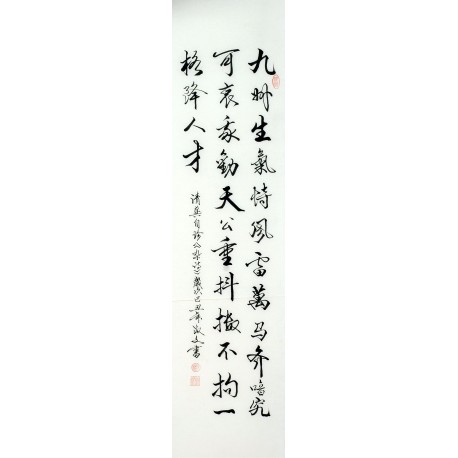 九州生氣恃風雷萬马齐喑究
可哀我勸天公重抖擻不拘一
格降人才
清龔自珍公雜詩歲次己丑年文書